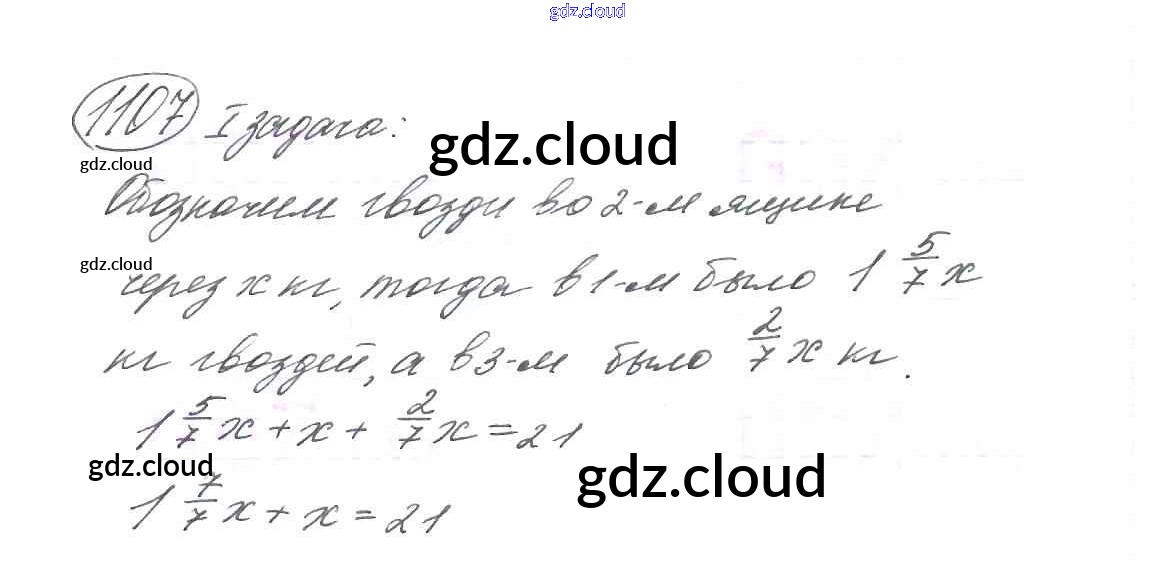 gdz.cloud
1107 I задача:
gdz.cloud
gdz.cloud
Обозначим гвозди во 2-м ящике
gdz.cloud
через x кг, тогда в 1-м было 1 5/7 x
кг гвоздей, а в 3-м было 2/7 x кг.
1 5/7 x + x + 2/7 x = 21
gdz.cloud
gdz.cloud
1 7/7 x + x = 21